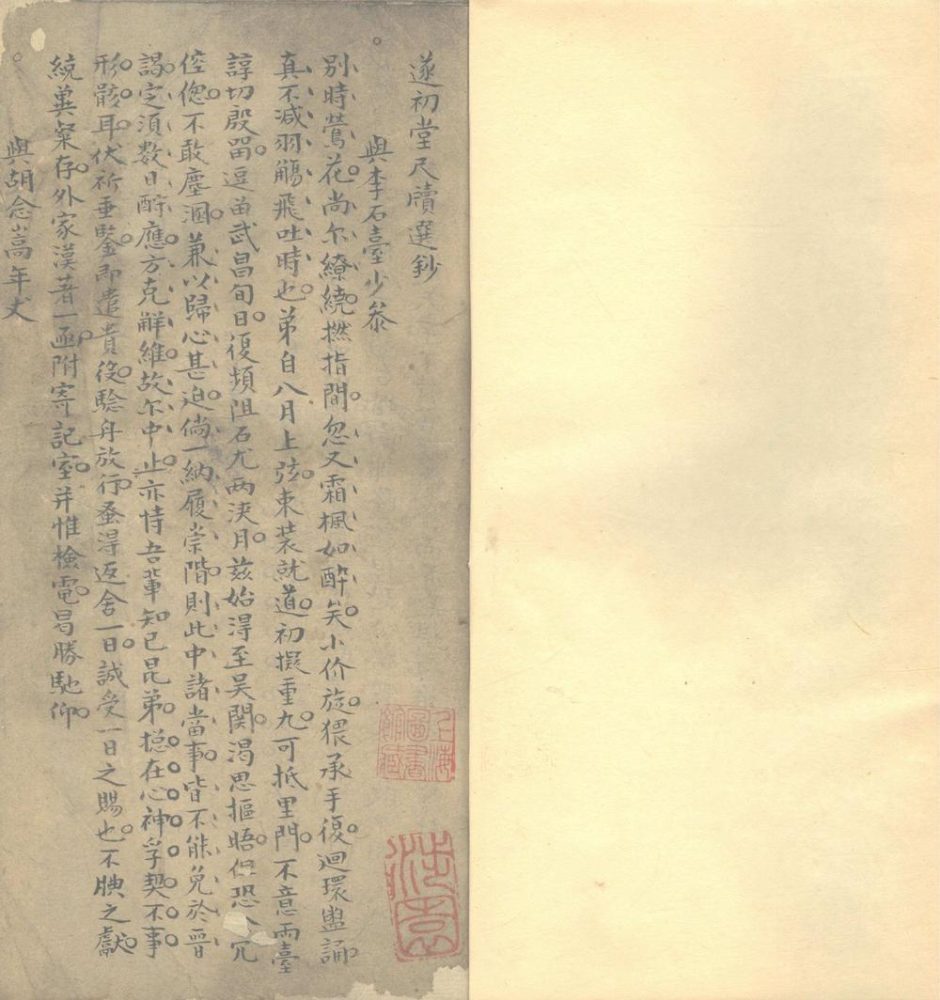 遂初堂尺牘選鈔
與李石臺少叅
別時鶯花尚尔繚繞撚指間忽又霜楓如醉矣小价旋猥承手復迴環盥誦
真不減羽觴飛吐時也弟自八月上弦束裝就道初擬重九可抵里門不意兩臺
諄切殷留逗留武昌旬日復頻阻石尤兩浹月兹始淂至吴関渴思摳晤但恐冗
倥偬不敢塵溷兼以歸心甚迫倘一納履崇階則此中諸當事皆不能免於晋
謁定須数日酧應方克觧維故尔中止亦恃吾輩知已昆弟揔在心神孚契不事
形骸耳伏祈垂鍳即遣貴役驗舟放行蚤淂返舍一日誠受一日之賜也不腆之獻
統兾粲存外家漢著一函附寄記室并惟檢電曷勝馳仰
與胡念蒿年丈
上海圖書館藏